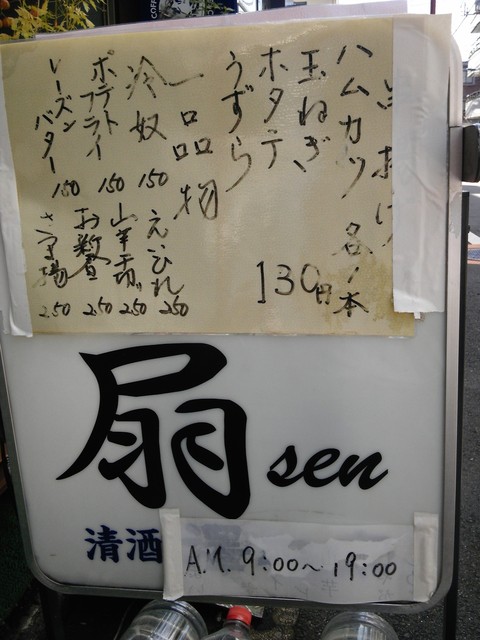 串揚げ
ハムカツ 各1本
玉ねぎ 130円
ホタテ
うずら
一品物
冷奴 150
ポテトフライ 150
レーズンバター 150
えいひれ 250
250
お新香 250
250
扇 sen
清酒
A.M. 9:00〜19:00